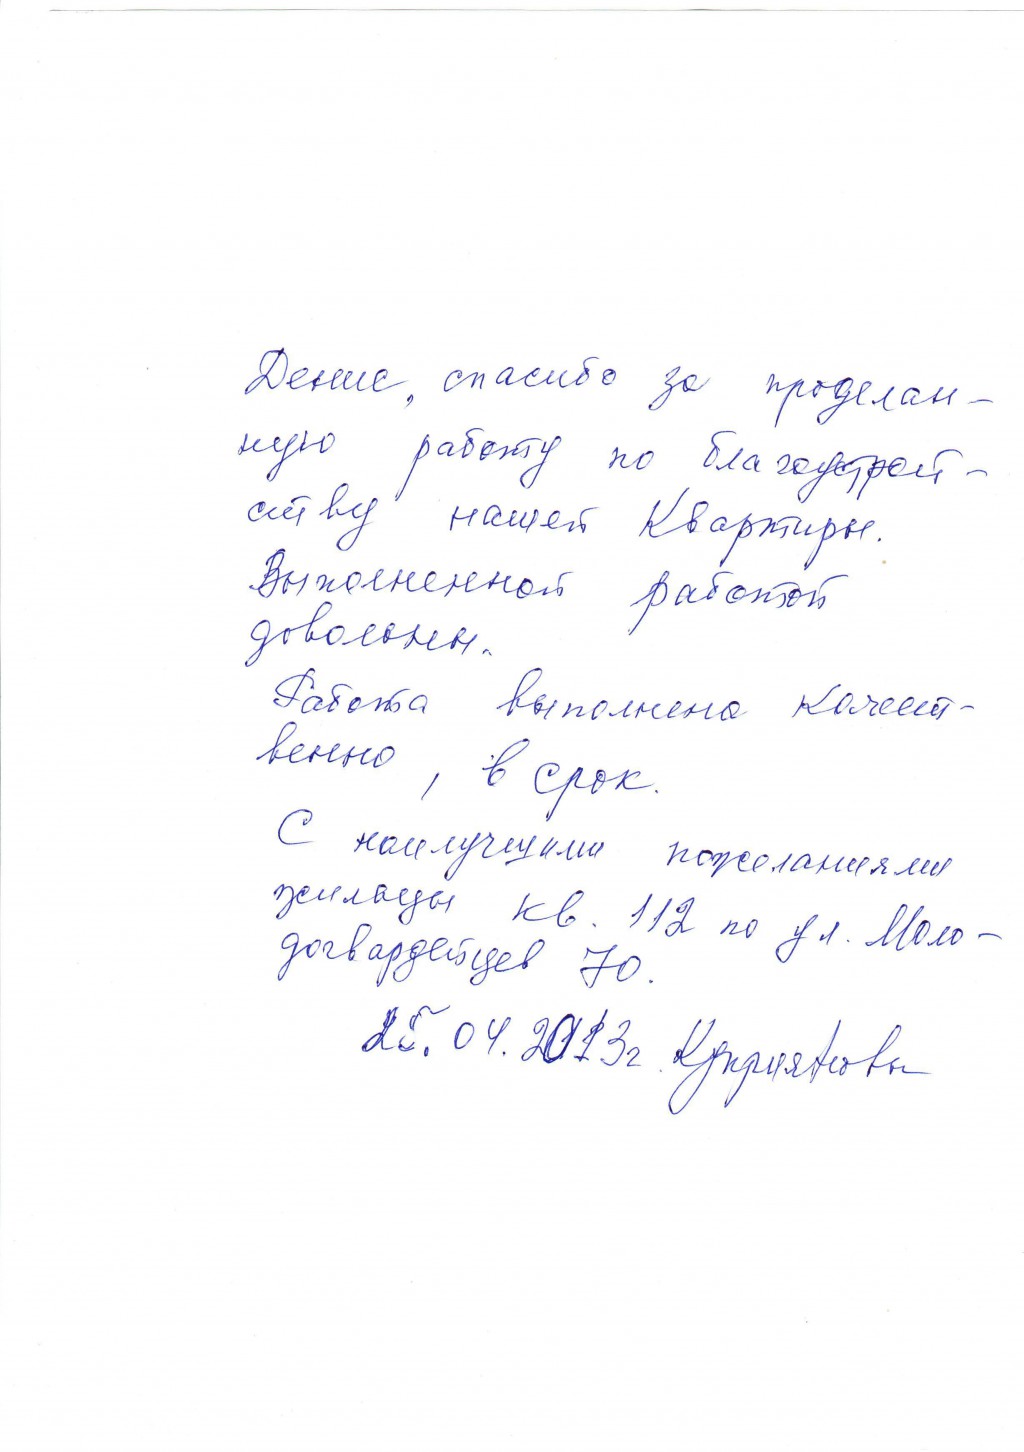 Денис, спасибо за проделан-
ную работу по благоустрой-
ству нашей квартиры.
Выполненной работой
довольны.
Работа выполнена качест-
венно, в срок.
С наилучшими пожеланиями
жильцы кв. 112 по ул. Моло-
догвардейцев 70.
25.04.2013г. Куприяновы